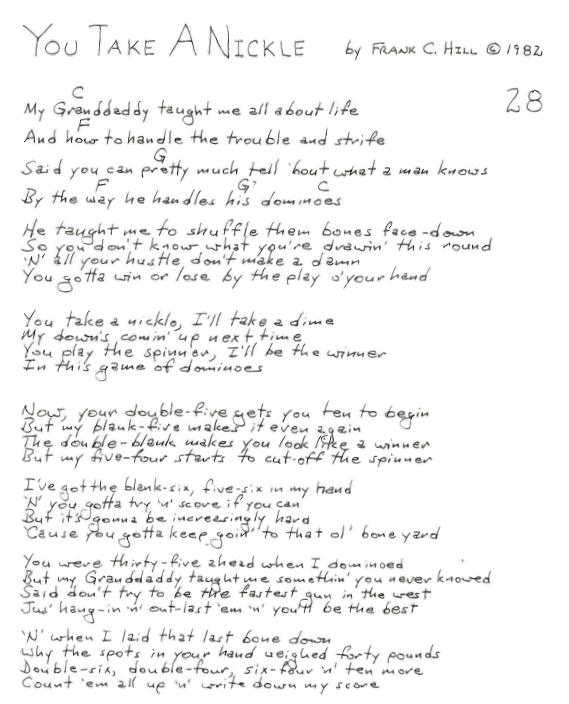 YOU TAKE A NICKLE by FRANK C. HILL © 1982
28
C
My Granddaddy taught me all about life
F
And how to handle the trouble and strife
G
Said you can pretty much tell 'bout what a man knows
F G7 C
By the way he handles his dominoes
He taught me to shuffle them bones face-down
So you don't know what you're drawin' this round
'N' all your hustle don't make a damn
You gotta win or lose by the play o' your hand
You take a nickle, I'll take a dime
My down's comin' up next time
You play the spinner, I'll be the winner
In this game of dominoes
Now, your double-five gets you ten to begin
But my blank-five makes it even again
The double-blank makes you look like a winner
But my five-four starts to cut-off the spinner
I've got the blank-six, five-six in my hand
'N' you gotta try 'n' score if you can
But it's gonna be increasingly hard
'Cause you gotta keep goin' to that ol' bone yard
You were thirty-five ahead when I dominoed
But my Granddaddy taught me somethin' you never knowed
Said don't try to be the fastest gun in the west
Jus' hang-in 'n' out-last 'em 'n' you'll be the best
'N' when I laid that last bone down
Why the spots in your hand weighed forty pounds
Double-six, double-four, six-four 'n' ten more
Count 'em all up 'n' write down my score